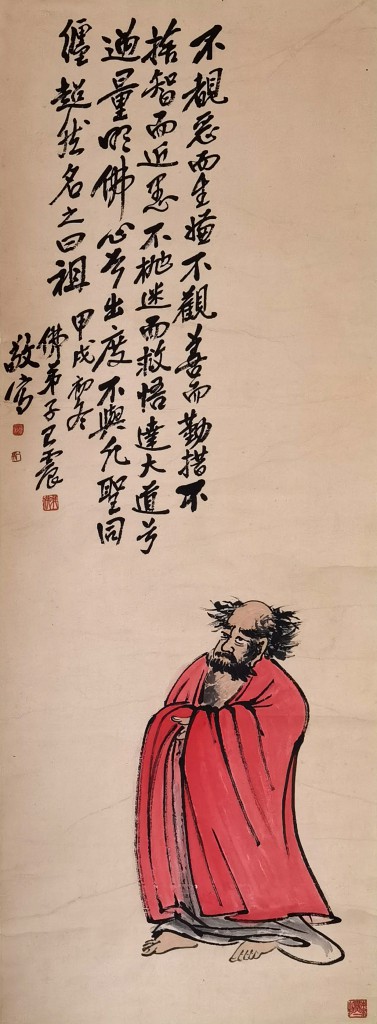 不覩惡而生嫌不觀善而勤措不
捨智而近愚不抛迷而救悟達大道兮
過量明佛心兮出度不與凡聖同
纏超然名之曰祖
甲戌初冬
佛弟子王震
敬寫